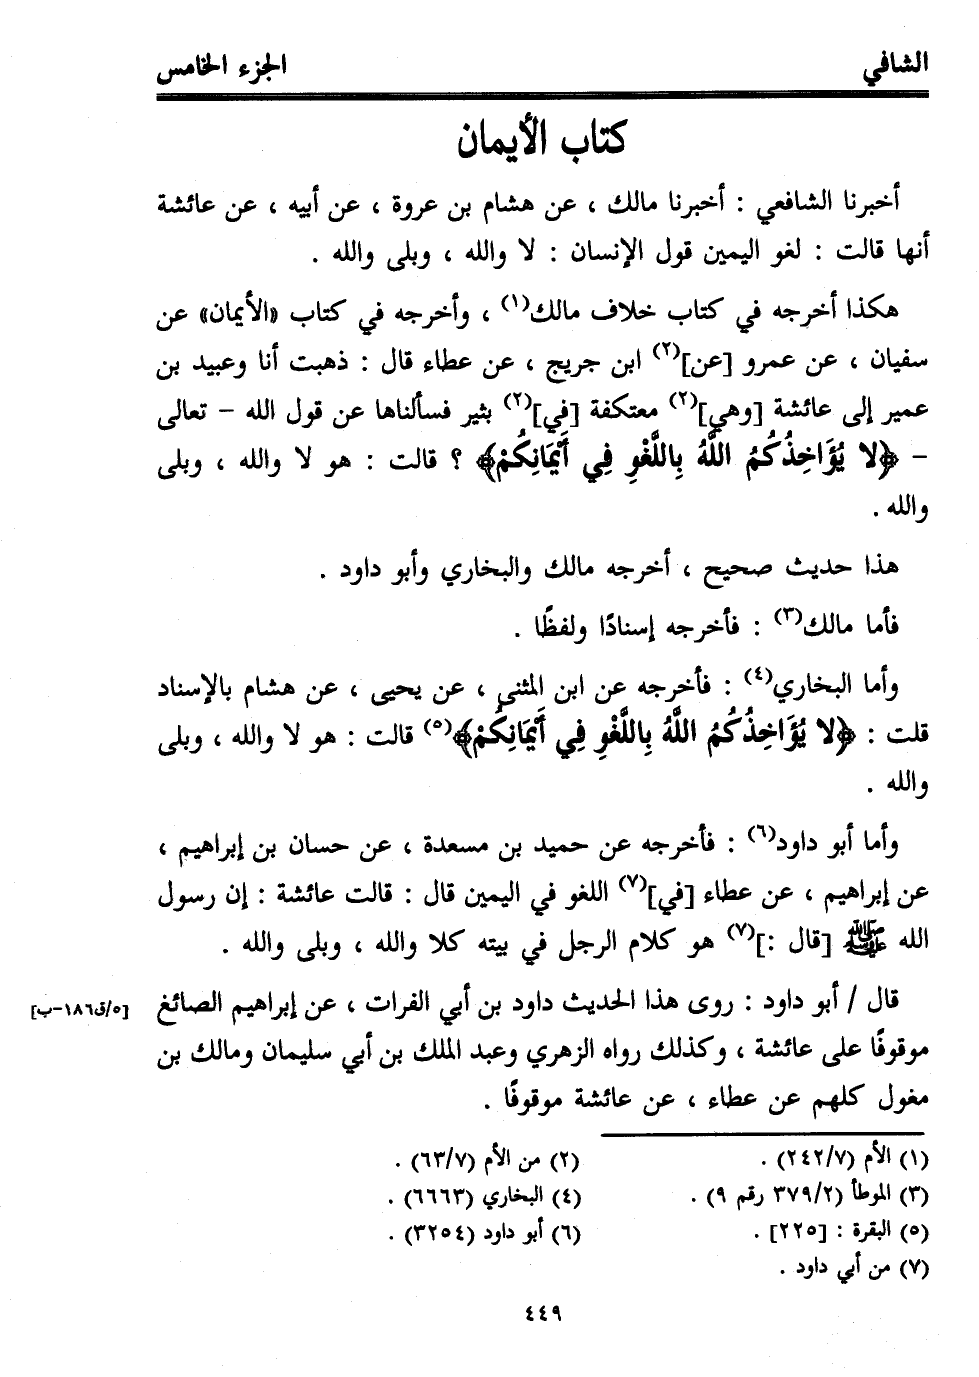 الشافي
الجزء الخامس
كتاب الأيمان
أخبرنا الشافعي : أخبرنا مالك ، عن هشام بن عروة ، عن أبيه ، عن عائشة
أنها قالت : لغو اليمين قول الإنسان : لا والله ، وبلى والله .
هكذا أخرجه في كتاب خلاف مالك(١) ، وأخرجه في كتاب «الأيمان» عن
سفيان ، عن عمرو [عن](٢) ابن جريج ، عن عطاء قال : ذهبت أنا وعبيد بن
عمير إلى عائشة [وهي](٢) معتكفة [في](٢) بثير فسألناها عن قول الله - تعالى
- ﴿لا يُؤَاخِذُكُمُ اللَّهُ بِاللَّغْوِ فِي أَيْمَانِكُمْ﴾ ؟ قالت : هو لا والله ، وبلى
والله .
هذا حديث صحيح ، أخرجه مالك والبخاري وأبو داود .
فأما مالك(٣) : فأخرجه إسنادًا ولفظًا .
وأما البخاري(٤) : فأخرجه عن ابن المثنى ، عن يحيى ، عن هشام بالإسناد
قلت : ﴿لا يُؤَاخِذُكُمُ اللَّهُ بِاللَّغْوِ فِي أَيْمَانِكُمْ﴾(٥) قالت : هو لا والله ، وبلى
والله .
وأما أبو داود(٦) : فأخرجه عن حميد بن مسعدة ، عن حسان بن إبراهيم ،
عن إبراهيم ، عن عطاء [في](٧) اللغو في اليمين قال : قالت عائشة : إن رسول
الله ﷺ [قال :](٧) هو كلام الرجل في بيته كلا والله ، وبلى والله .
قال / أبو داود : روى هذا الحديث داود بن أبي الفرات ، عن إبراهيم الصائغ
[٥/ق١٨٦-ب]
موقوفًا على عائشة ، وكذلك رواه الزهري وعبد الملك بن أبي سليمان ومالك بن
مغول كلهم عن عطاء ، عن عائشة موقوفًا .
(١) الأم (٢٤٢/٧) .
(٢) من الأم (٦٣/٧) .
(٣) الموطأ (٣٧٩/٢ رقم ٩) .
(٤) البخاري (٦٦٦٣) .
(٥) البقرة : [٢٢٥] .
(٦) أبو داود (٣٢٥٤) .
(٧) من أبي داود .
٤٤٩